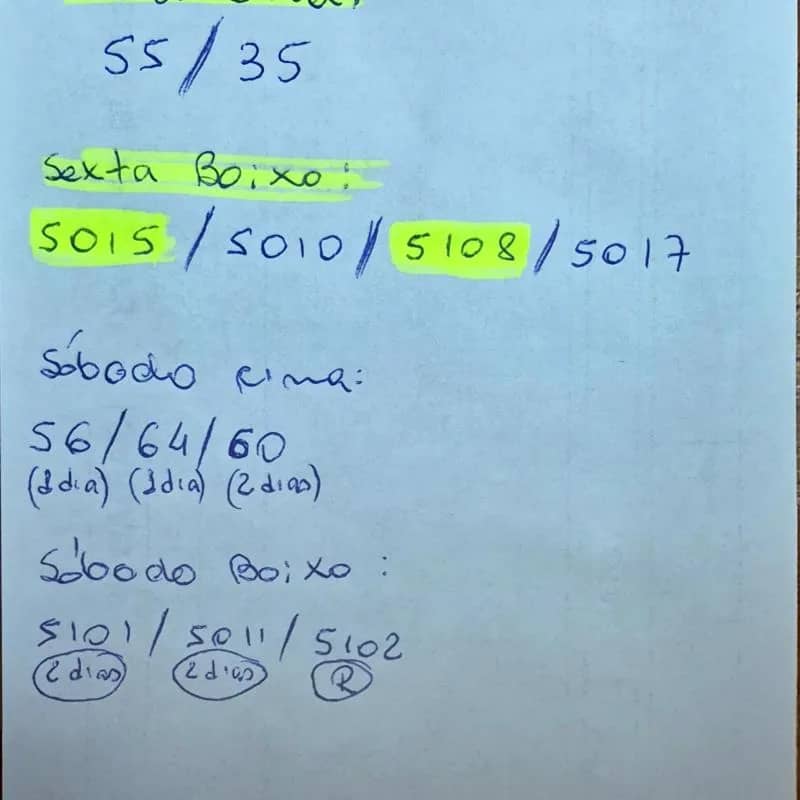 55 / 35
Sexta Baixo:
5015 / 5010 / 5108 / 5017
Sábado cima:
56 / 64 / 60
(1 dia) (1 dia) (2 dias)
Sábado Baixo:
5101 / 5011 / 5102
2 dias 2 dias R